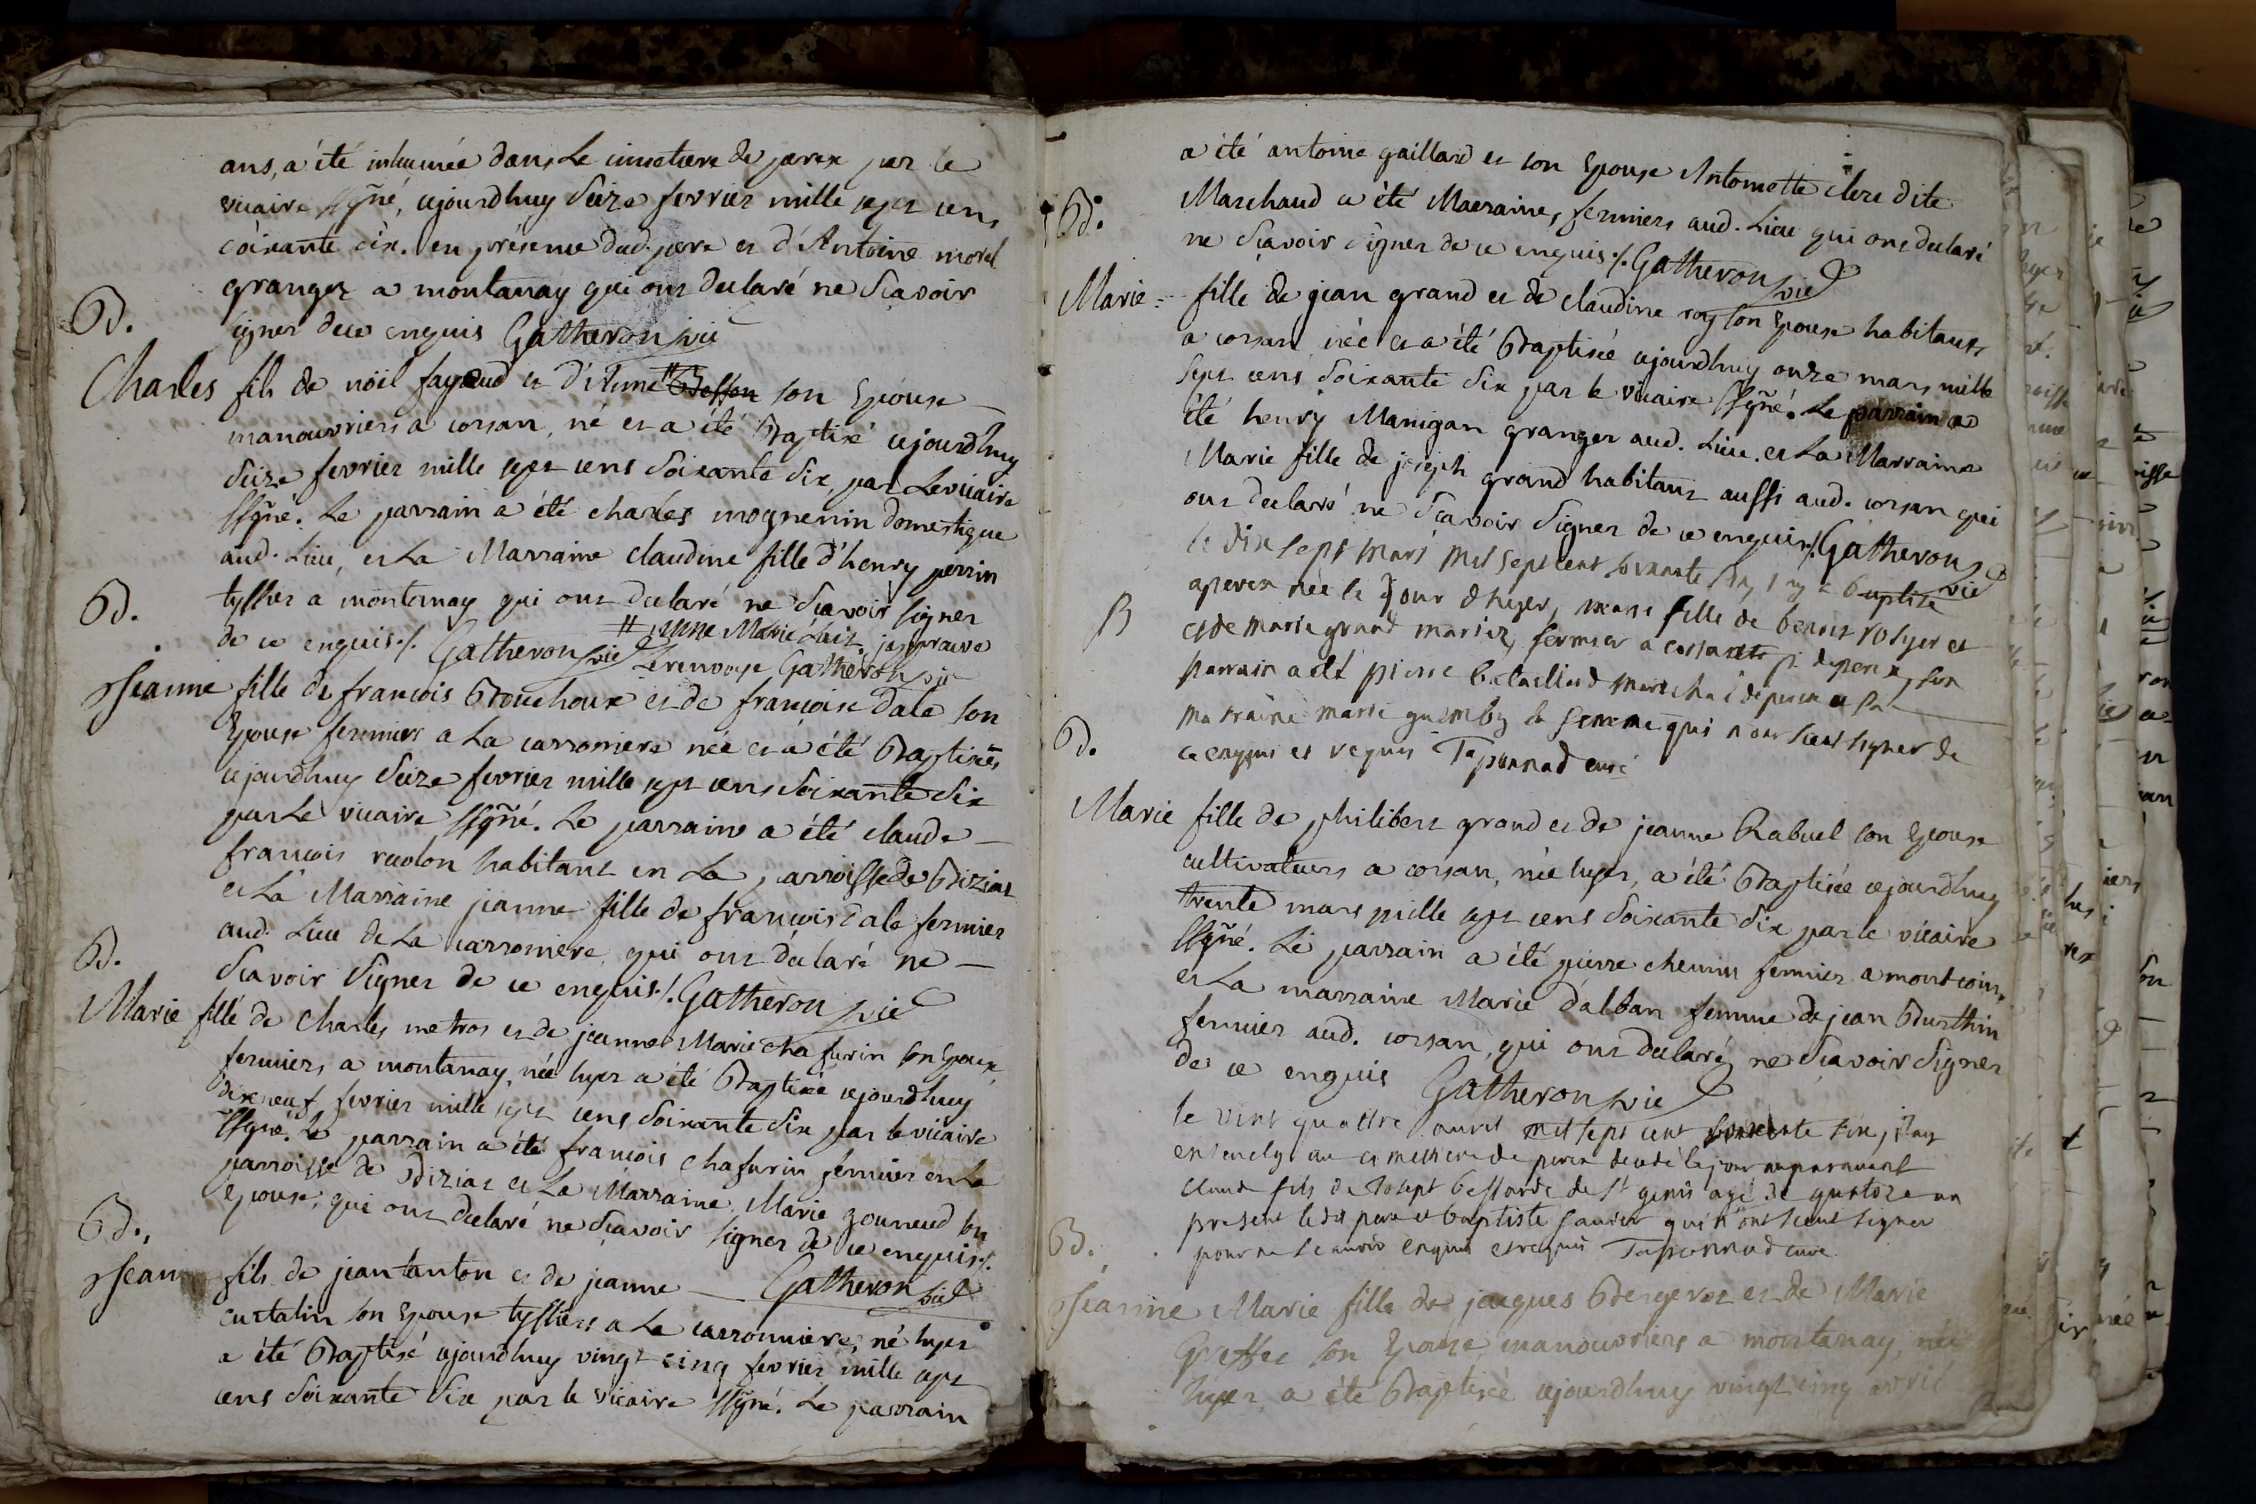 ans, a été inhumée dans le cimetiere de perex par le
vicaire ssgñé, cejourdhuy seize fevrier mille sept cens
soixante dix. en présence dud. pere et d'Antoine morel
granger a montanay qui ont declaré ne sçavoir
Bd.
signer de ce enquis Gatheron vic
Charles fils de noël fayoud et d'etienne # Besson son Epouse
manouvriers a corsan, né et a été Baptisé cejourdhuy
seize fevrier mille sept cens soixante dix par le vicaire
ssgñé. Le parrain a été charles mognenin domestique
aud. Lieu, et La Marraine claudine fille d'henry perrin
Bd.
tyssier a montanay qui ont declaré ne sçavoir signer
de ce enquis ./. Gatheron vic # jeanne Marie Lait, japprouve
Le renvoye Gatheron vic
Jeanne fille de francois Brouchoux et de francoise dale son
Epouse fermiers a La carroniere née et a été Baptisée
cejourdhuy seize fevrier mille sept cens soixante dix
par Le vicaire ssgñé. Le parrain a été claude
francois rudon habitant en La parroisse de Biziat
et La Marraine jeanne fille de francois dale fermier
aud. Lieu de La carroniere, qui ont déclaré ne
Bd.
sçavoir signer de ce enquis ./. Gatheron vic
Marie fille de charles metros et de jeanne Marie chafurin son Epouse
fermiers a montanay, née hyer a été Baptisée cejourdhuy
dix neuf fevrier mille sept cens soixante dix par le vicaire
ssgñé. Le parrain a été francois chafurin fermier en La
parroisse de Biziat et La Marraine Marie gouneud son
Epouse, qui ont declaré ne sçavoir signer de ce enquis ./.
Bd.
Jean fils de jean tanton et de jeanne Gatheron vic
curtalin son Epouse tyssiers a La carronniere, né hyer
a été Baptisé cejourdhuy vingt cinq fevrier mille sept
cens soixante dix par le vicaire ssgñé. Le parrain
a été antoine gaillard et son Epouse Antoinette clerc dite
Bd.
Marchand a été Marraine, fermiers aud. Lieu qui ont declaré
ne sçavoir signer de ce enquis ./. Gatheron vic
Marie fille de jean grand et de claudine roy son Epouse habitants
a corsan née et a été Baptisée cejourdhuy onze mars mille
sept cens soixante dix par le vicaire ssgñé. Le parrain a
été henry Manigan granger aud. Lieu. et La Marraine
Marie fille de joseph grand habitant aussi aud. corsan qui
ont declaré ne sçavoir signer de ce enquis ./. Gatheron vic
le dix sept mars mil sept cent soixante dix, j'ay baptisé
B
a perex née le jour d'hyer, marie fille de benoit rolyer et
et de marie grand mariez, fermier a corsant p. de perex, son
parrain a eté pierre taillard marechal de perex et sa
maraine marie la femme qui n'ont sceut signer de
Bd.
ce enquis et requis Taponnad curé
Marie fille de philibert grand et de jeanne Rabuel son Epouse
cultivateurs a corsan, née hyer, a été Baptisée cejourdhuy
trente mars mille sept cens soixante dix par le vicaire
ssgñé. Le parrain a été pierre chemin fermier a montcoin,
et La marraine Marie d'alban femme de jean Burthin
fermier aud. corsan, qui ont declaré ne sçavoir signer
de ce enquis Gatheron vic
le vint quattre avril mil sept cent soixante dix, j'ay
enseuely au cimettiere de perex decedé le jour auparavant
claude fils de Josept bessarde de st genis agé de quatoze an
present le dit pere et baptiste sauier qui n'ont sceut signer
B.
pour ne le scavoir enquis et requis Taponnad curé
Jeanne Marie fille de jacques Bergerot et de Marie
Greffet son Epouse, manouvriers a montanay, née
hyer, a été Baptisée cejourdhuy vingt cinq avril